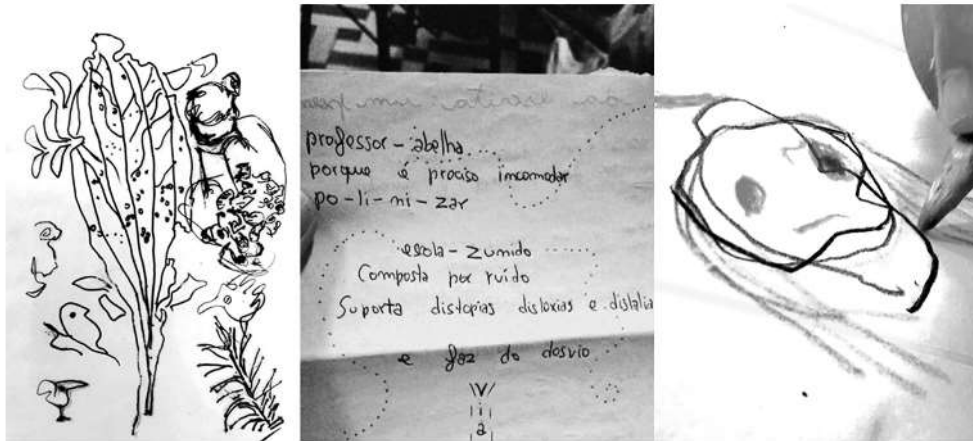 professor-abelha
porque é preciso incomodar
po-li-ni-zar
escola-zumido
Composta por ruído
Suporta distopias dislexias e dislalia
e faz do desvio
V
i
a